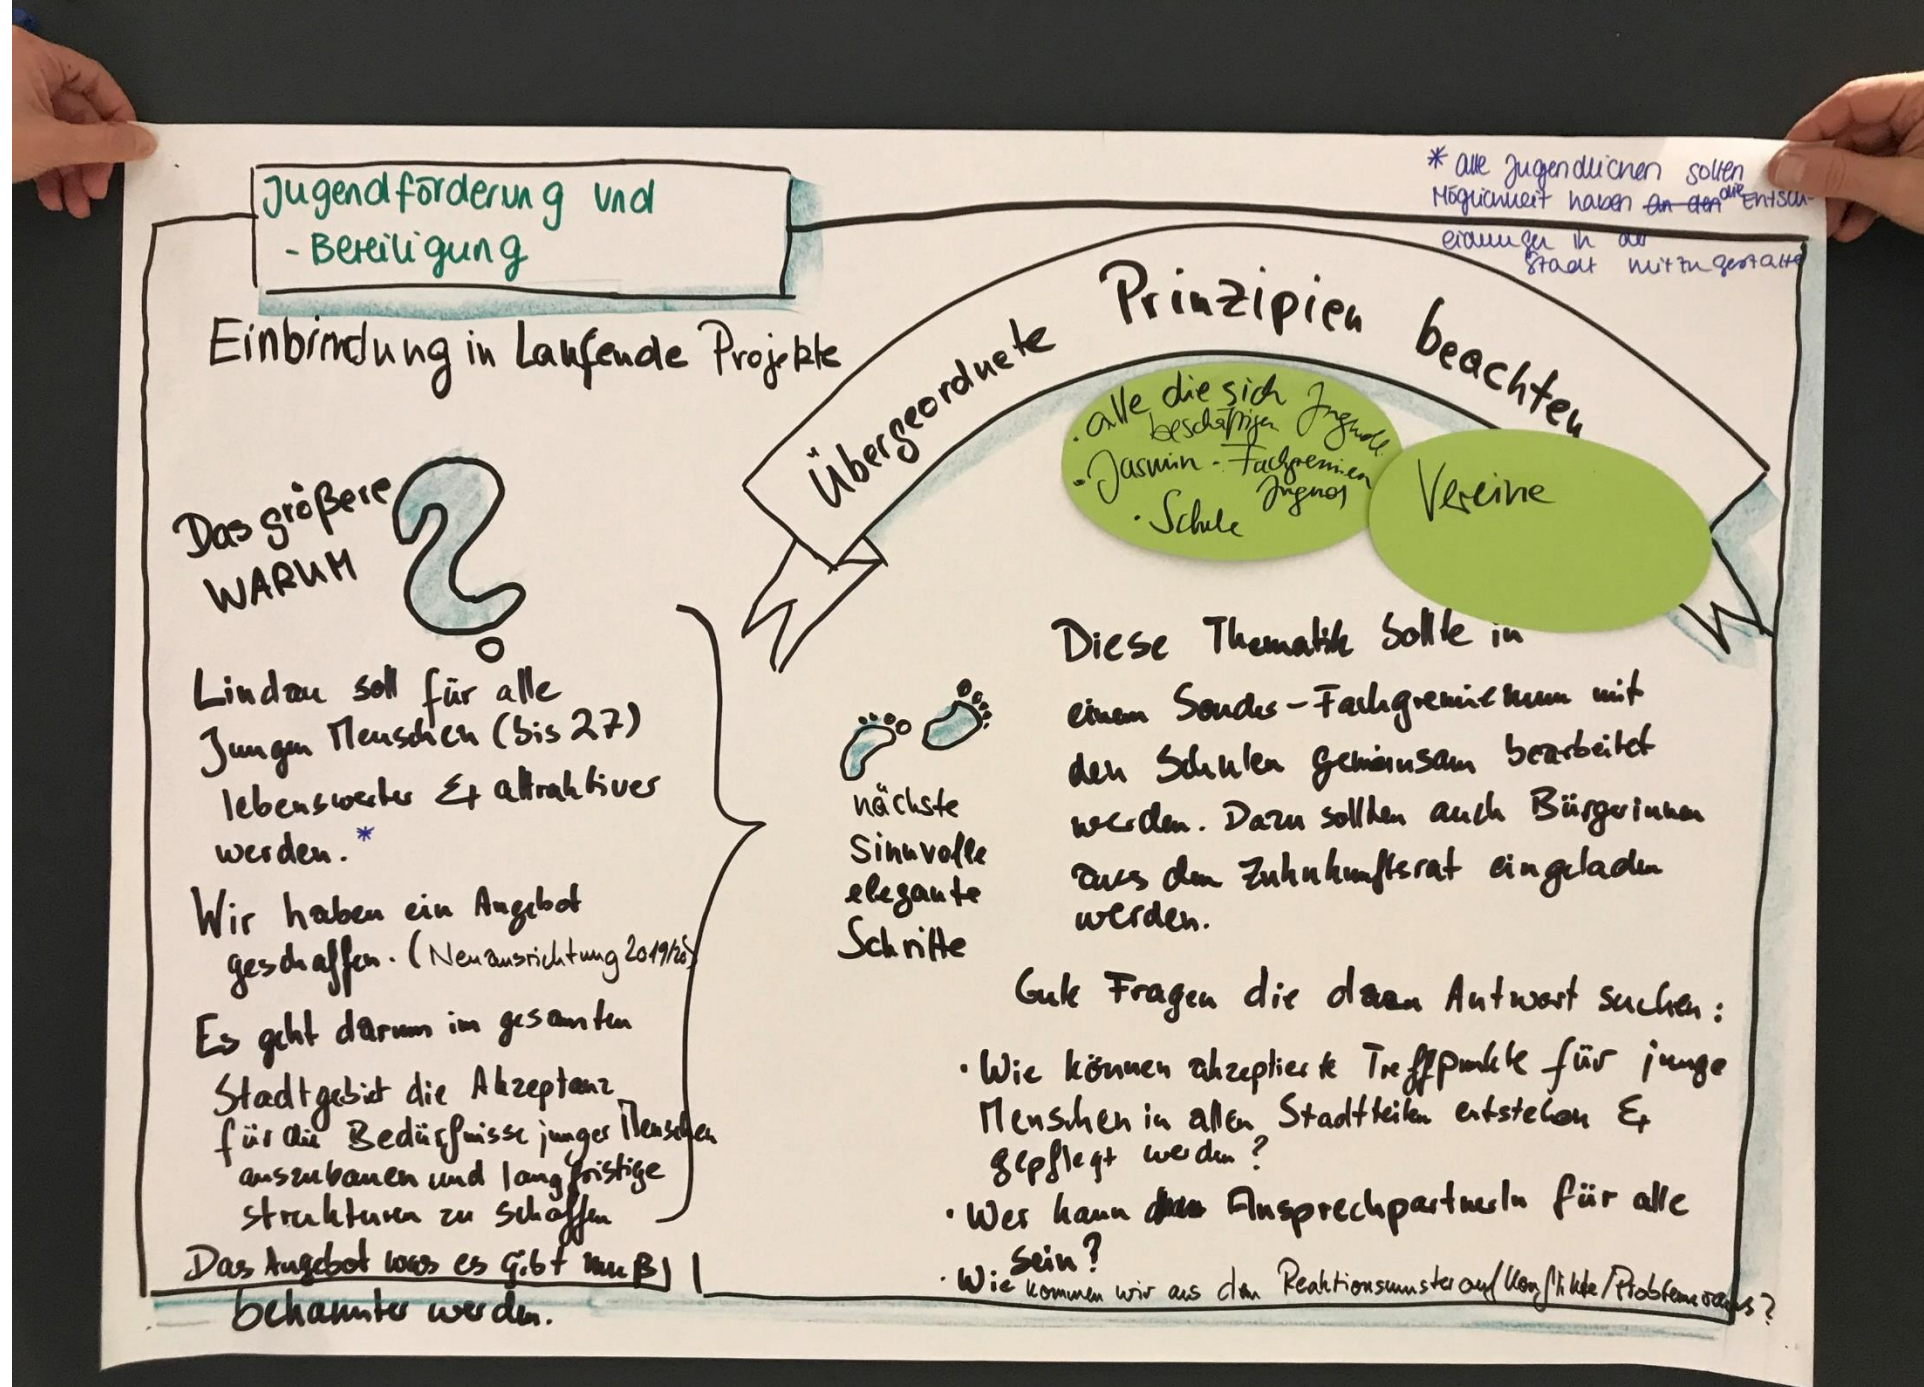 Jugendförderung und
- Beteiligung
* alle Jugendlichen sollen
Möglichkeit haben an den die Entsch-
eidungen in der
Stadt mitzugestalten
Einbindung in Laufende Projekte
Übergeordnete Prinzipien beachten
. alle die sich
beschäftigen Jugendl.
- Jasmin - Fachgremien
Jugend
· Schule
Vereine
Das größere
WARUM
?
Lindau soll für alle
Jungen Menschen (bis 27)
lebenswerter & attraktiver
werden. *
Wir haben ein Angebot
geschaffen. (Neuausrichtung 2019/20)
Es geht darum im gesamten
Stadtgebiet die Akzeptanz
für die Bedürfnisse junger Menschen
auszubauen und langfristige
strukturen zu schaffen
Das Angebot was es gibt muß
bekannter werden.
nächste
Sinnvolle
elegante
Schritte
Diese Thematik sollte in
einem Sonder-Fachgremium mit
den Schulen gemeinsam bearbeitet
werden. Dazu sollten auch Bürgerinnen
aus dem Zukunftsrat eingeladen
werden.
Gute Fragen die dann Antwort suchen:
· Wie können akzeptierte Treffpunkte für junge
Menschen in allen Stadtteilen entstehen &
gepflegt werden?
· Wer kann AnsprechpartnerIn für alle
sein?
· Wie kommen wir aus dem Reaktionsmuster auf Konflikte/Probleme raus?